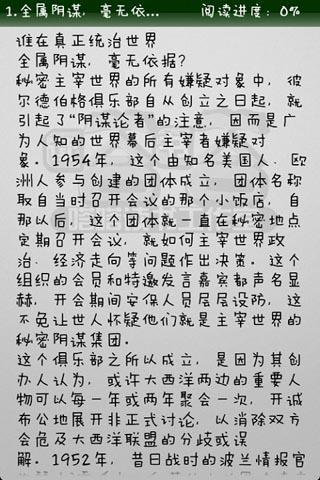 1.全属阴谋，毫无依... 阅读进度：0%
谁在真正统治世界
全属阴谋，毫无依据？
秘密主宰世界的所有嫌疑对象中，彼
尔德伯格俱乐部自从创立之日起，就
引起了“阴谋论者”的注意，因而是广
为人知的世界幕后主宰者嫌疑对
象。1954年，这个由知名美国人、欧
洲人参与创建的团体成立，团体名称
取自当时召开会议的那个小饭店，自
那以后，这个团体就一直在秘密地点
定期召开会议，就如何主宰世界政
治、经济走向等问题作出决策。这个
组织的会员和特邀发言嘉宾都声名显
赫，开会期间安保人员层层设防，这
不免让世人怀疑他们就是主宰世界的
秘密阴谋集团。
这个俱乐部之所以成立，是因为其创
办人认为，或许大西洋两边的重要人
物可以每一年或两年聚会一次，开诚
布公地展开非正式讨论，以消除双方
会危及大西洋联盟的分歧或误
解。1952年，昔日战时的波兰情报官